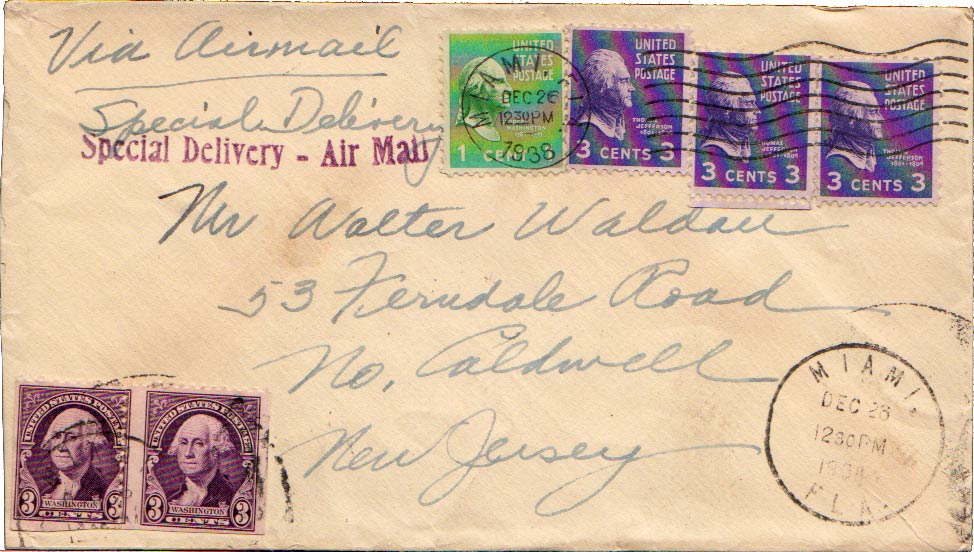 Via Airmail
Special Delivery
Special Delivery - Air Mail
UNITED STATES POSTAGE
WASHINGTON
1 CENT
MIAMI
DEC 26
12 30 PM
1938
UNITED STATES POSTAGE
THOMAS JEFFERSON
1801-1809
3 CENTS 3
UNITED STATES POSTAGE
THOMAS JEFFERSON
1801-1809
3 CENTS 3
UNITED STATES POSTAGE
THOMAS JEFFERSON
1801-1809
3 CENTS 3
Mr Walter Waldau
53 Ferndale Road
No. Caldwell
New Jersey
MIAMI,
DEC 26
12 30 PM
1938
FLA.
UNITED STATES POSTAGE
3 WASHINGTON 3
CENTS
UNITED STATES POSTAGE
3 WASHINGTON 3
CENTS